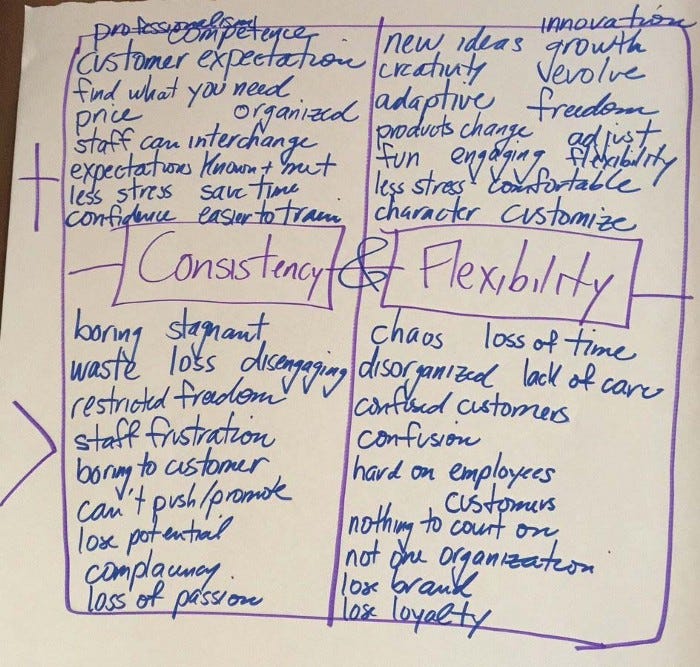 professionalism
competence
customer expectation
find what you need
price organized
staff can interchange
expectations known + met
less stress save time
confidence easier to train
innovation
new ideas growth
creativity evolve
adaptive freedom
products change adjust
fun engaging flexibility
less stress comfortable
character customize
+
Consistency & Flexibility
boring stagnant
waste loss disengaging
restricted freedom
staff frustration
boring to customer
can't push/promote
lose potential
complacency
loss of passion
chaos loss of time
disorganized lack of care
confused customers
confusion
hard on employees
customers
nothing to count on
not one organization
lose brand
lose loyalty